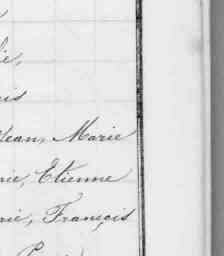 ie,
is
Jean, Marie
ne, Etienne
rie, François